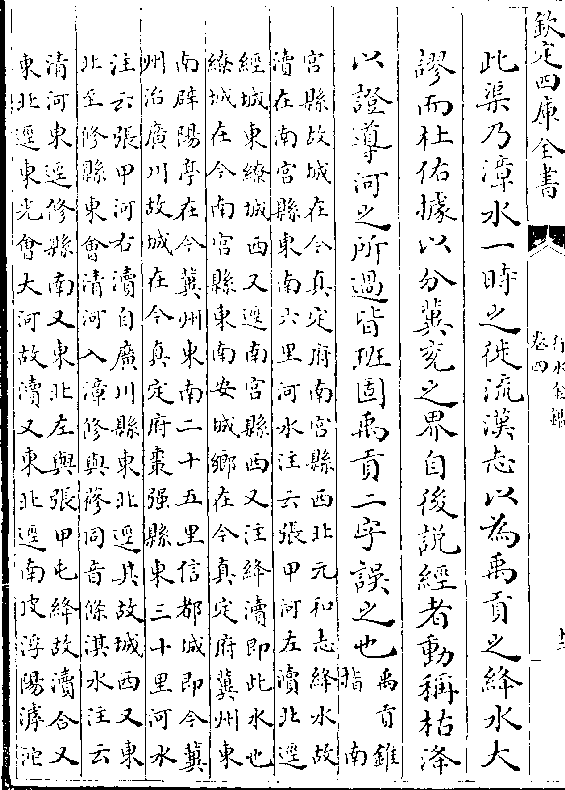 欽定四庫全書
行水金鑑
卷四
十二
此渠乃漳水一時之徙流漢志以為禹貢之絳水大
謬而杜佑據以分冀兖之界自後説經者動稱枯洚
以證導河之所過皆班固禹貢二字誤之也
禹貢錐
指　南
宫縣故城在今真定府南宫縣西北元和志絳水故
瀆在南宫縣東南六里河水注云張甲河左瀆北逕
經城東繚城西又逕南宫縣西又注絳瀆即此水也
繚城在今南宫縣東南安城鄉在今真定府冀州東
南辟陽亭在今冀州東南二十五里信都城即今冀
州治廣川故城在今真定府棗强縣東三十里河水
注云張甲河右瀆自廣川縣東北逕其故城西又東
北至修縣東會清河入漳修與蓨同音條淇水注云
清河東逕修縣南又東北左與張甲屯絳故瀆合又
東北逕東光會大河故瀆又東北逕南皮浮陽滹沱